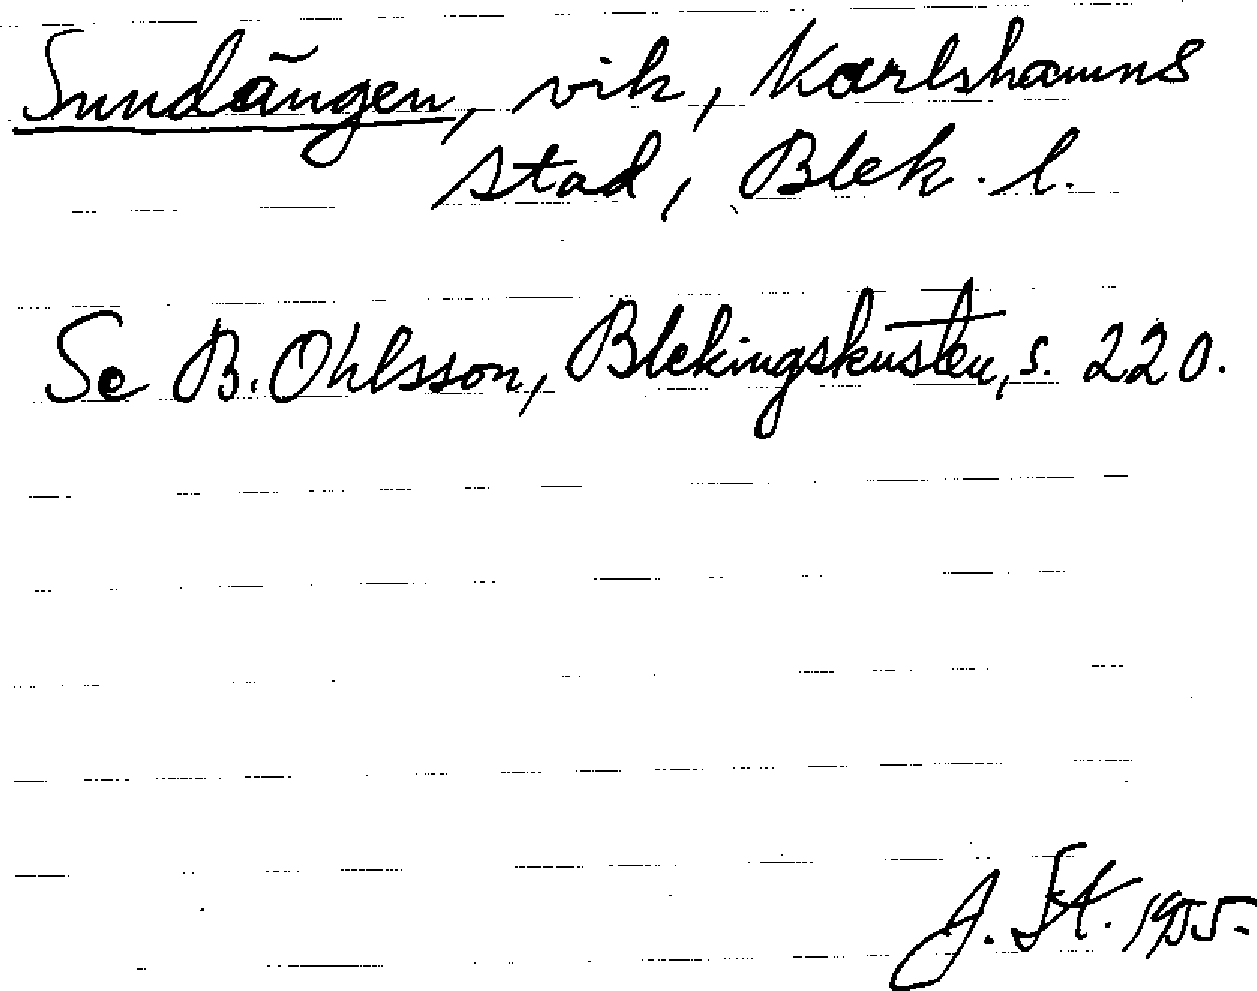 Sundängen, vik, Karlshamns
stad, Blek. l.
Se B. Ohlsson, Blekingskusten, s. 220.
J. St. 1955.